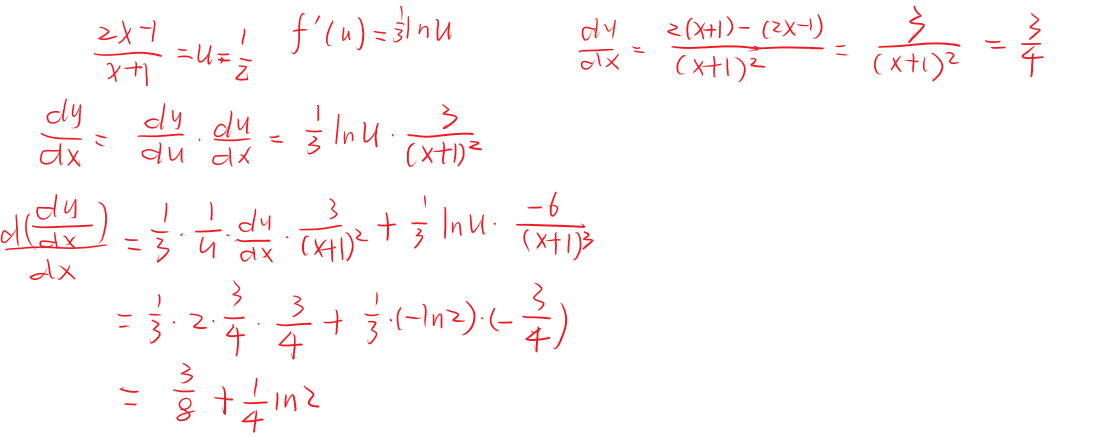 (2x-1)/(x+1) = u = 1/2 f'(u) = 1/3 ln u du/dx = (2(x+1) - (2x-1))/(x+1)² = 3/(x+1)² = 3/4
dy/dx = dy/du · du/dx = 1/3 ln u · 3/(x+1)²
d(dy/dx)/dx = 1/3 · 1/u · du/dx · 3/(x+1)² + 1/3 ln u · -6/(x+1)³
= 1/3 · 2 · 3/4 · 3/4 + 1/3 · (-ln2) · (-3/4)
= 3/8 + 1/4 ln2